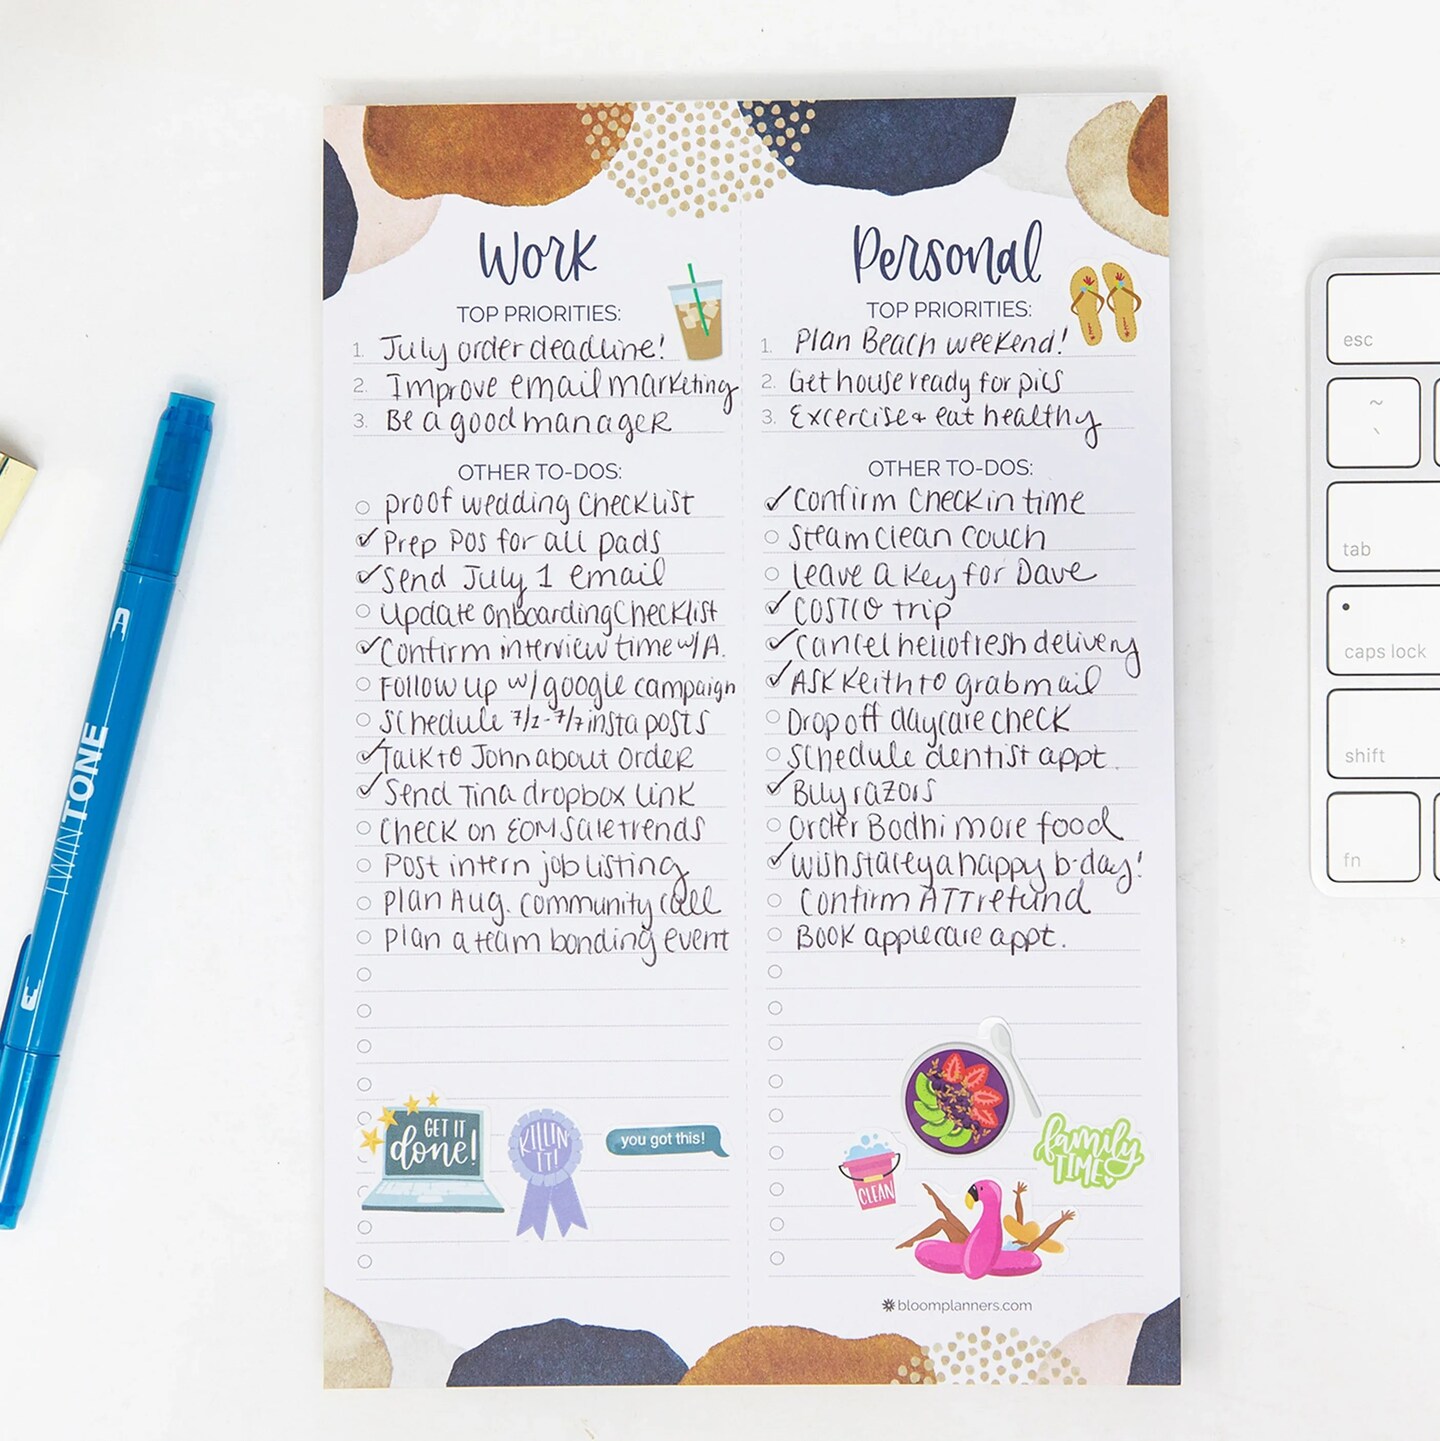 Work
TOP PRIORITIES:
1. July order deadline!
2. Improve email marketing
3. Be a good manager
OTHER TO-DOS:
proof wedding checklist
✓ Prep POs for all pads
✓ Send July 1 email
Update onboarding checklist
✓ Confirm interview time w/A.
Follow up w/google campaign
Schedule 7/1-7/7 insta posts
✓ Talk to John about order
✓ Send Tina dropbox link
Check on EOM sale trends
Post intern job listing
Plan Aug. community call
Plan a team bonding event
GET IT
done!
KILLIN'
IT!
you got this!
Personal
TOP PRIORITIES:
1. Plan Beach weekend!
2. Get house ready for pics
3. Excercise + eat healthy
OTHER TO-DOS:
✓ Confirm Check in time
Steam clean couch
Leave a key for Dave
✓ COSTCO trip
✓ Cancel hellofresh delivery
✓ ASK Keith to grab mail
Drop off daycare check
Schedule dentist appt.
✓ Buy razors
Order Bodhi more food
✓ Wish staceya happy b-day!
Confirm ATT refund
Book applecare appt.
family
TIME
CLEAN
bloomplanners.com
TWINTONE
esc
~
`
tab
caps lock
shift
fn